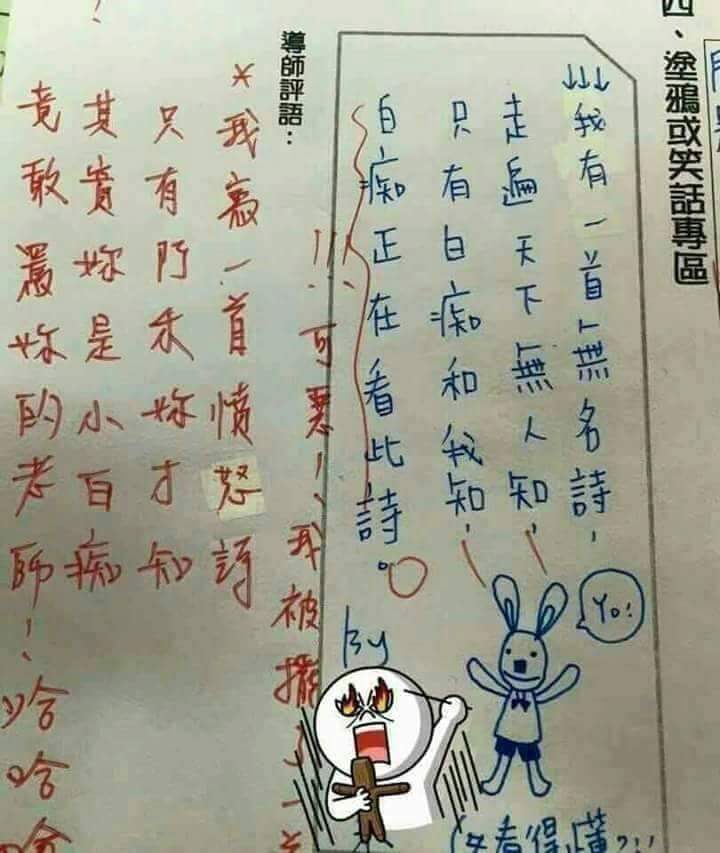 四、塗鴉或笑話專區
↓↓↓我有一首無名詩,
走遍天下無人知,
只有白痴和我知,
白痴正在看此詩。
Yo!
By
看得懂?!!
導師評語:
!!!可惡!、我被擺了一
*我寫一首憤怒詩
只有阿禾妳才知
其實妳是小白痴
竟敢罵妳的老師!哈哈哈